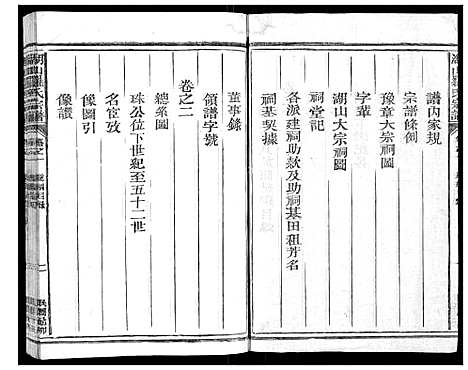 譜內家規
宗譜條例
豫章大宗祠圖
字輩
湖山大宗祠圖
祠堂記
各派建祠助欵及助祠基田租芳名
祠基契據
董事錄
領譜字號
卷之二
總系圖
珠公位下世紀至五十二世
名宦攷
像圖引
像讚
湖山羅氏宗譜